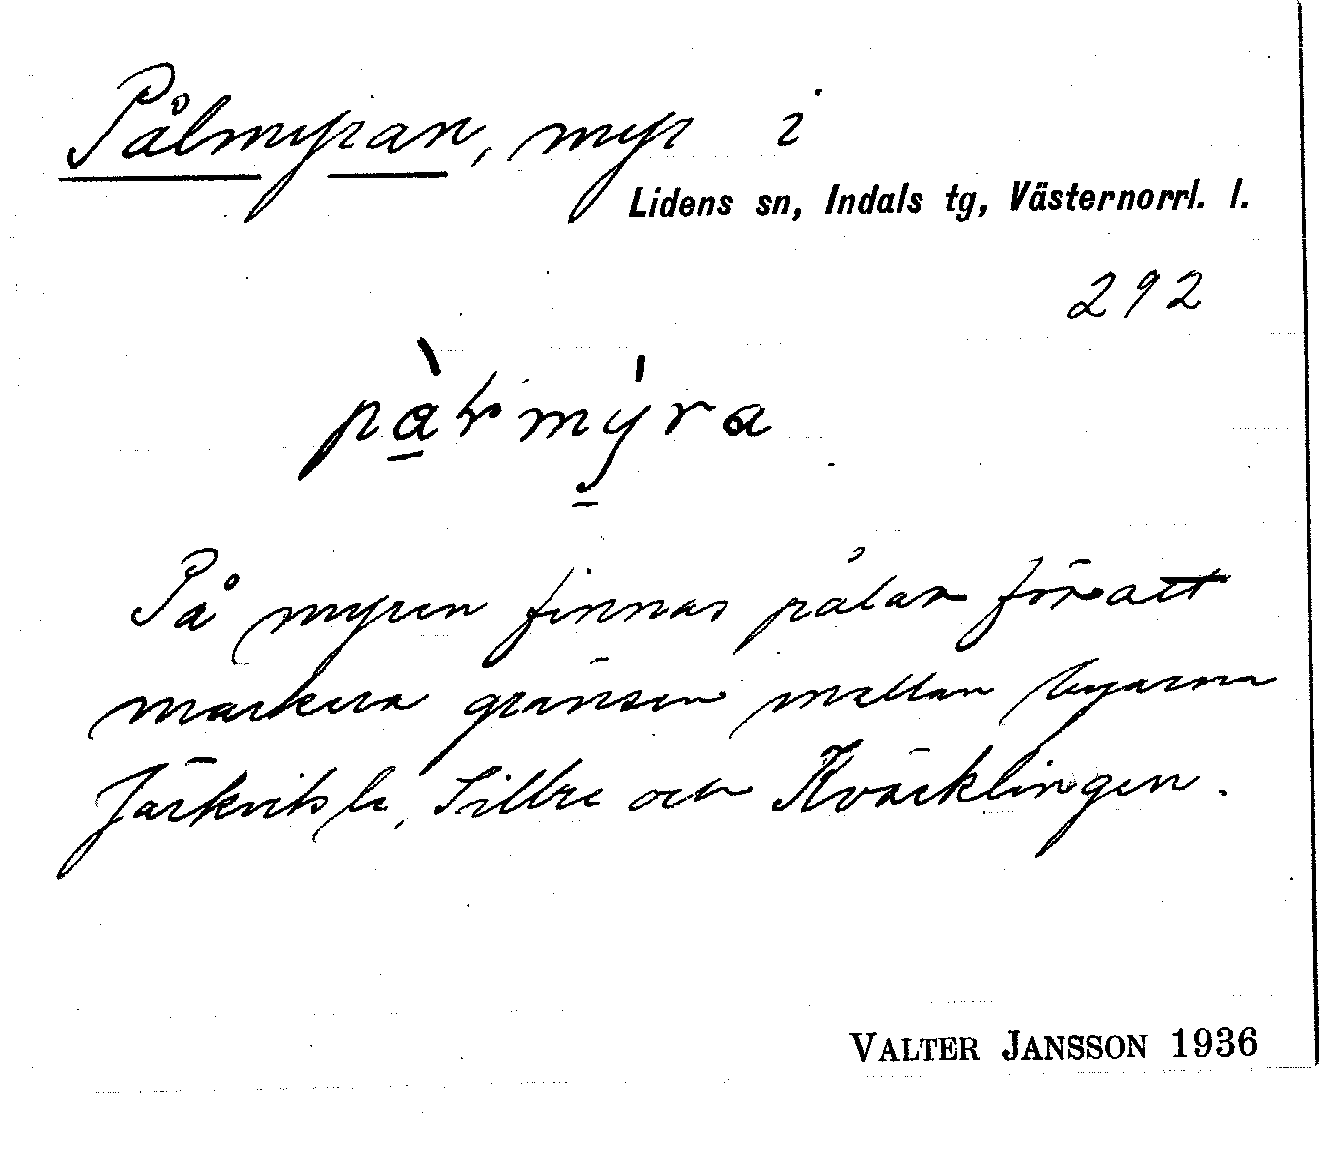 Pålmyran, myr i
Lidens sn, Indals tg, Västernorrl. l.
292
På myren finnas pålar för att
markera gränsen mellan byarna
Järkvitsle, Sillre och Kväcklingen.
VALTER JANSSON 1936